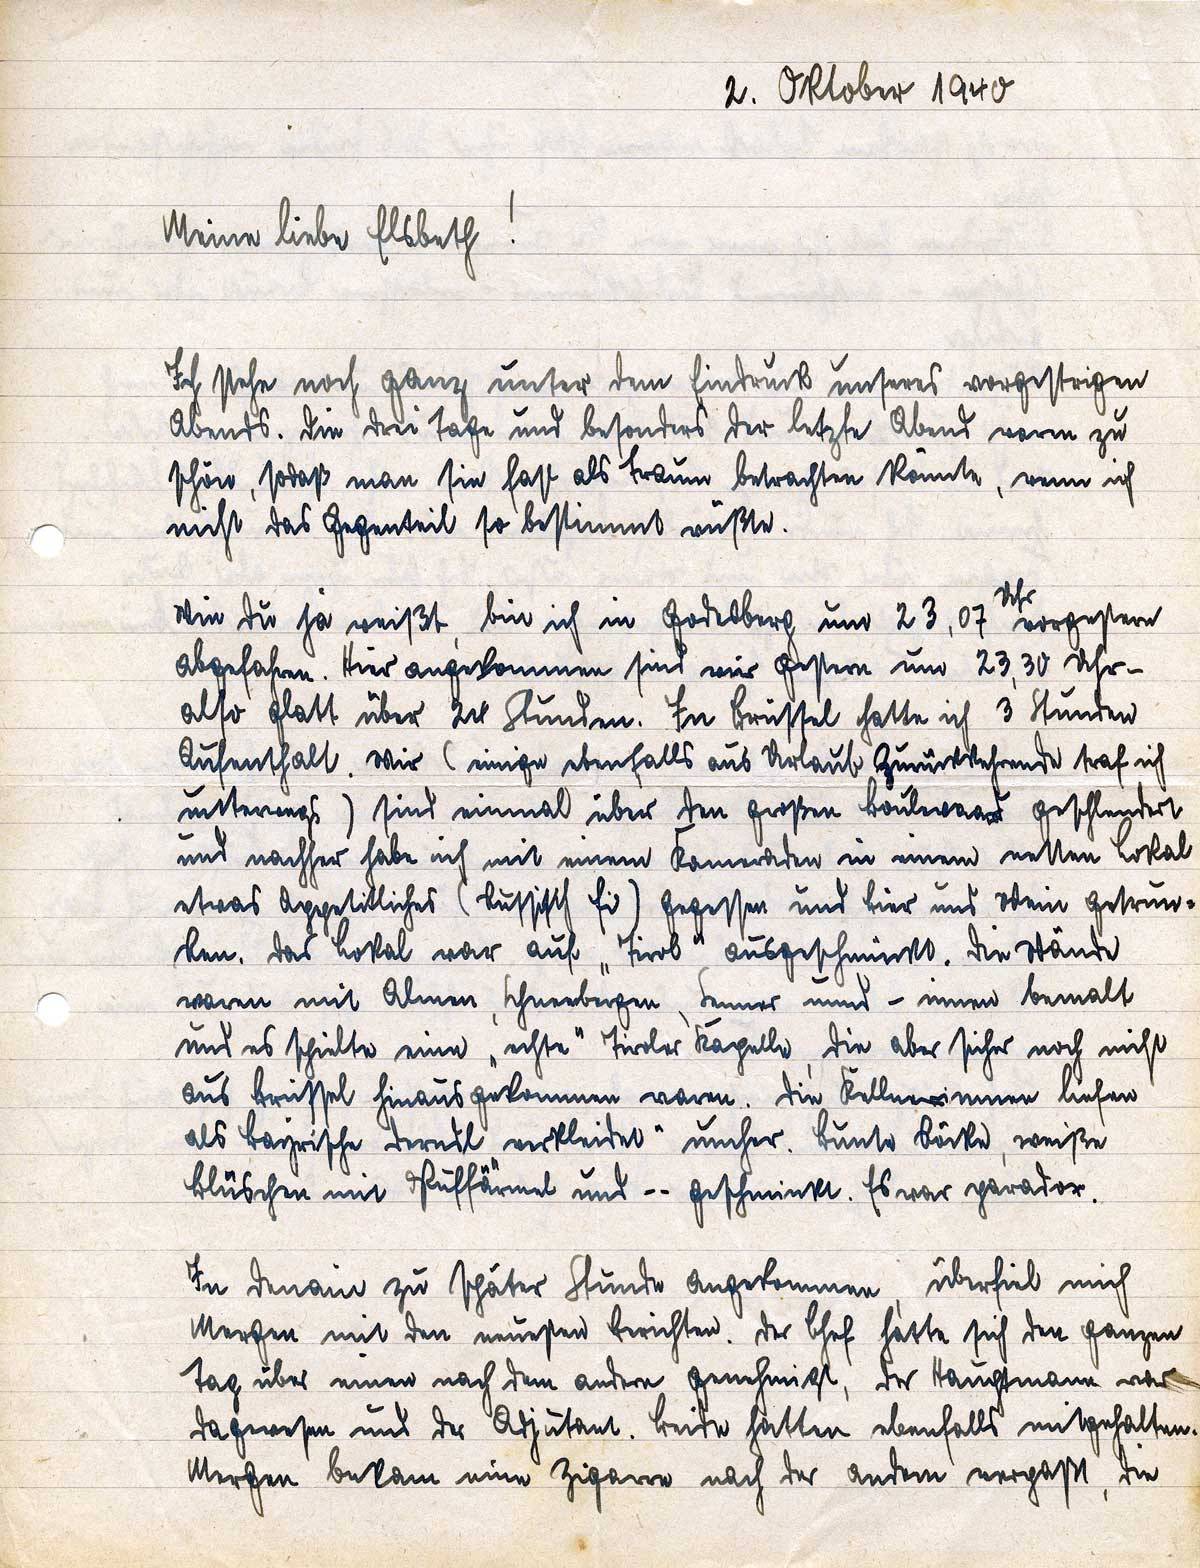 2. Oktober 1940
Meine liebe Elsbeth!
Ich stehe noch ganz unter dem Eindruck unseres vorgestrigen
Abends. Die drei Tage und besonders der letzte Abend waren zu
schön, sodaß man sie fast als Traum betrachten könnte, wenn ich
nicht das Gegenteil so bestimmt wüßte.
Wie Du ja weißt, bin ich in Godesberg um 23,07 Uhr vorgestern
abgefahren. Hier angekommen sind wir gestern um 23,30 Uhr -
also glatt über 24 Stunden. In Brüssel hatte ich 3 Stunden
Aufenthalt. Wir (einige ebenfalls aus Urlaub Zurückkehrende traf ich
unterwegs) sind einmal über den großen Boulevard geschlendert
und nachher habe ich mit einem Kameraden in einem netten Lokal
etwas Appetitliches ( ) gegessen und Bier und Wein getrun=
ken. Das Lokal war auf „Tirol" ausgeschmückt. Die Wände
waren mit Almen, Schneebergen, Senner und - innen bemalt
und es spielte eine „echte" Tiroler Kapelle, die aber sicher noch nicht
aus Brüssel hinausgekommen waren. Die Kellnerinnen liefen
als bayrische Derndl „verkleidet" umher. Bunte Röcke, weiße
Blüschen mit Puffärmel und -- geschminkt. Es war paradox.
In Denain zu später Stunde angekommen, überfiel mich
Mergen mit den neuesten Berichten. Der Chef hatte sich den ganzen
Tag über einen nach dem andern genehmigt, der Hauptmann war
dagewesen und der Adjutant. Beide hatten ebenfalls mitgehalten.
Mergen bekam eine Zigarre nach der andern verpaßt, die